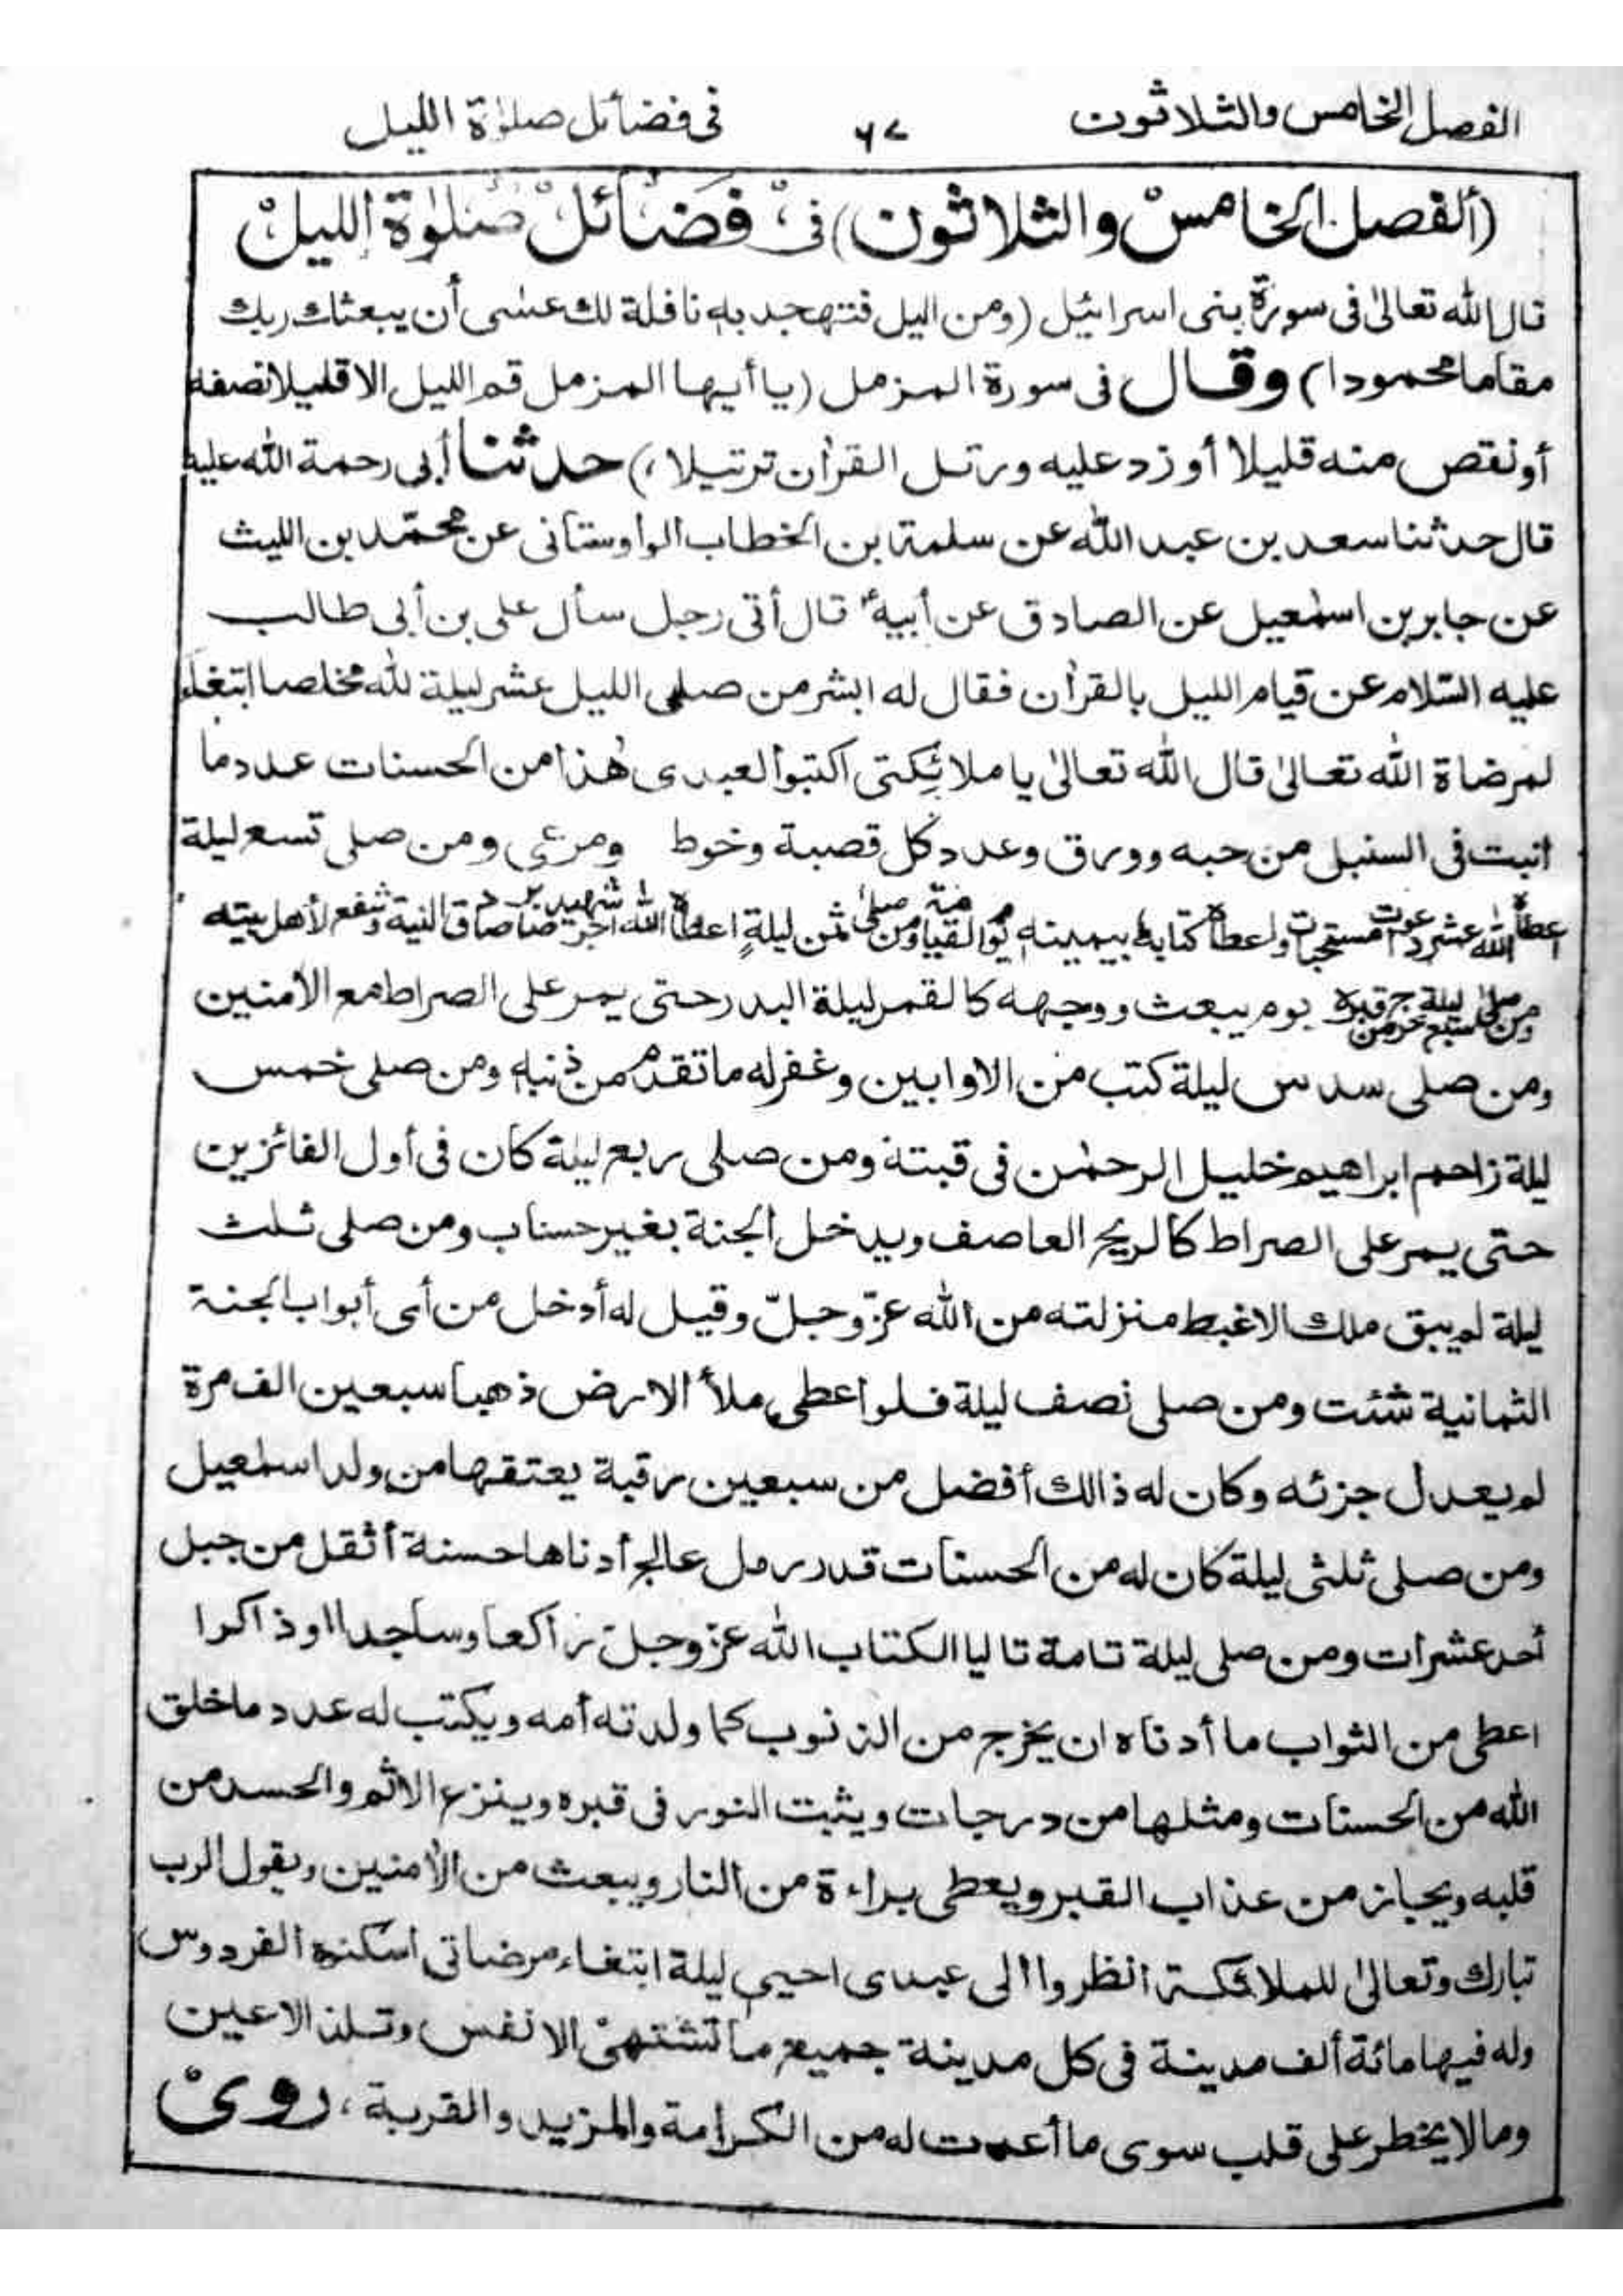 الفصل الخامس والثلاثون ٦٧ فى فضائل صلوٰة الليل
(ألفصل الخامس والثلاثون) فى فضائل صلوٰة الليل
قال الله تعالىٰ فى سورة بنى اسرائيل (ومن اليل فتهجد به نافلة لك عسٰى أن يبعثك ربك
مقاما محمودا) وقال فى سورة المزمل (يا أيها المزمل قم الليل الا قليلا نصفه
أو نقص منه قليلا أو زد عليه ورتل القراٰن ترتيلا،) حدثنا أبى رحمة الله عليه
قال حدثنا سعد بن عبد الله عن سلمة بن الخطاب الواوستانى عن محمّد بن الليث
عن جابر بن اسمٰعيل عن الصادق عن أبيهؑ قال أتى رجل سأل على بن أبى طالب
عليه السّلام عن قيام الليل بالقراٰن فقال له ابشر من صلى الليل عشر ليلة لله مخلصا ابتغاء
لمرضاة الله تعالىٰ قال الله تعالىٰ يا ملائكتى اكتبوا لعبدى هٰذا من الحسنات عدد ما
انبت فى السنبل من حبه وورق وعدد كل قصبة وخوط ومرعى ومن صلى تسع ليلة
اعطاه الله عشر دعوات مستجبات واعطاه كتابه بيمينه يوم القيامة ومن صلى ثمن ليلةٍ اعطاه الله اجر شهيد صادق النية وشفع لأهل بيته
ومن صلى سبع ليلة خرج من قبره يوم يبعث ووجهه كالقمر ليلة البدر حتى يمر على الصراط مع الاٰمنين
ومن صلى سدس ليلة كتب من الاوابين وغفر له ما تقدم من ذنبه ومن صلى خمس
ليلة زاحم ابراهيم خليل الرحمٰن فى قبته ومن صلى ربع ليلة كان فى أول الفائزين
حتى يمر على الصراط كالريح العاصف ويدخل الجنة بغير حساب ومن صلى ثلث
ليلة لم يبق ملك الا غبط منزلته من الله عزّ وجلّ وقيل له أدخل من أى أبواب الجنة
الثمانية شئت ومن صلى نصف ليلة فلو اعطى ملأ الارض ذهبا سبعين الف مرة
لم يعدل جزئه وكان له ذالك أفضل من سبعين رقبة يعتقها من ولد اسمٰعيل
ومن صلى ثلثى ليلة كان له من الحسنات قدر رمل عالج أدناها حسنة أثقل من جبل
أحد عشرات ومن صلى ليلة تامة تاليا الكتاب الله عزّ وجلّ راكعا وساجدا اوذاكرا
اعطى من الثواب ما أدناه ان يخرج من الذنوب كما ولدته أمه ويكتب له عدد ما خلق
الله من الحسنات ومثلها من درجات ويثبت النور فى قبره وينزع الاثم والحسد من
قلبه ويجاز من عذاب القبر ويعطى براءة من النار ويبعث من الاٰمنين ويقول الرب
تبارك وتعالىٰ للملائكة انظروا الى عبدى احيى ليلة ابتغاء مرضاتى اسكنوه الفردوس
وله فيها مائة ألف مدينة فى كل مدينة جميع ما تشتهى الانفس وتلذ الاعين
وما لا يخطر على قلب سوى ما أعددت له من الكرامة والمزيد والقربة، روى